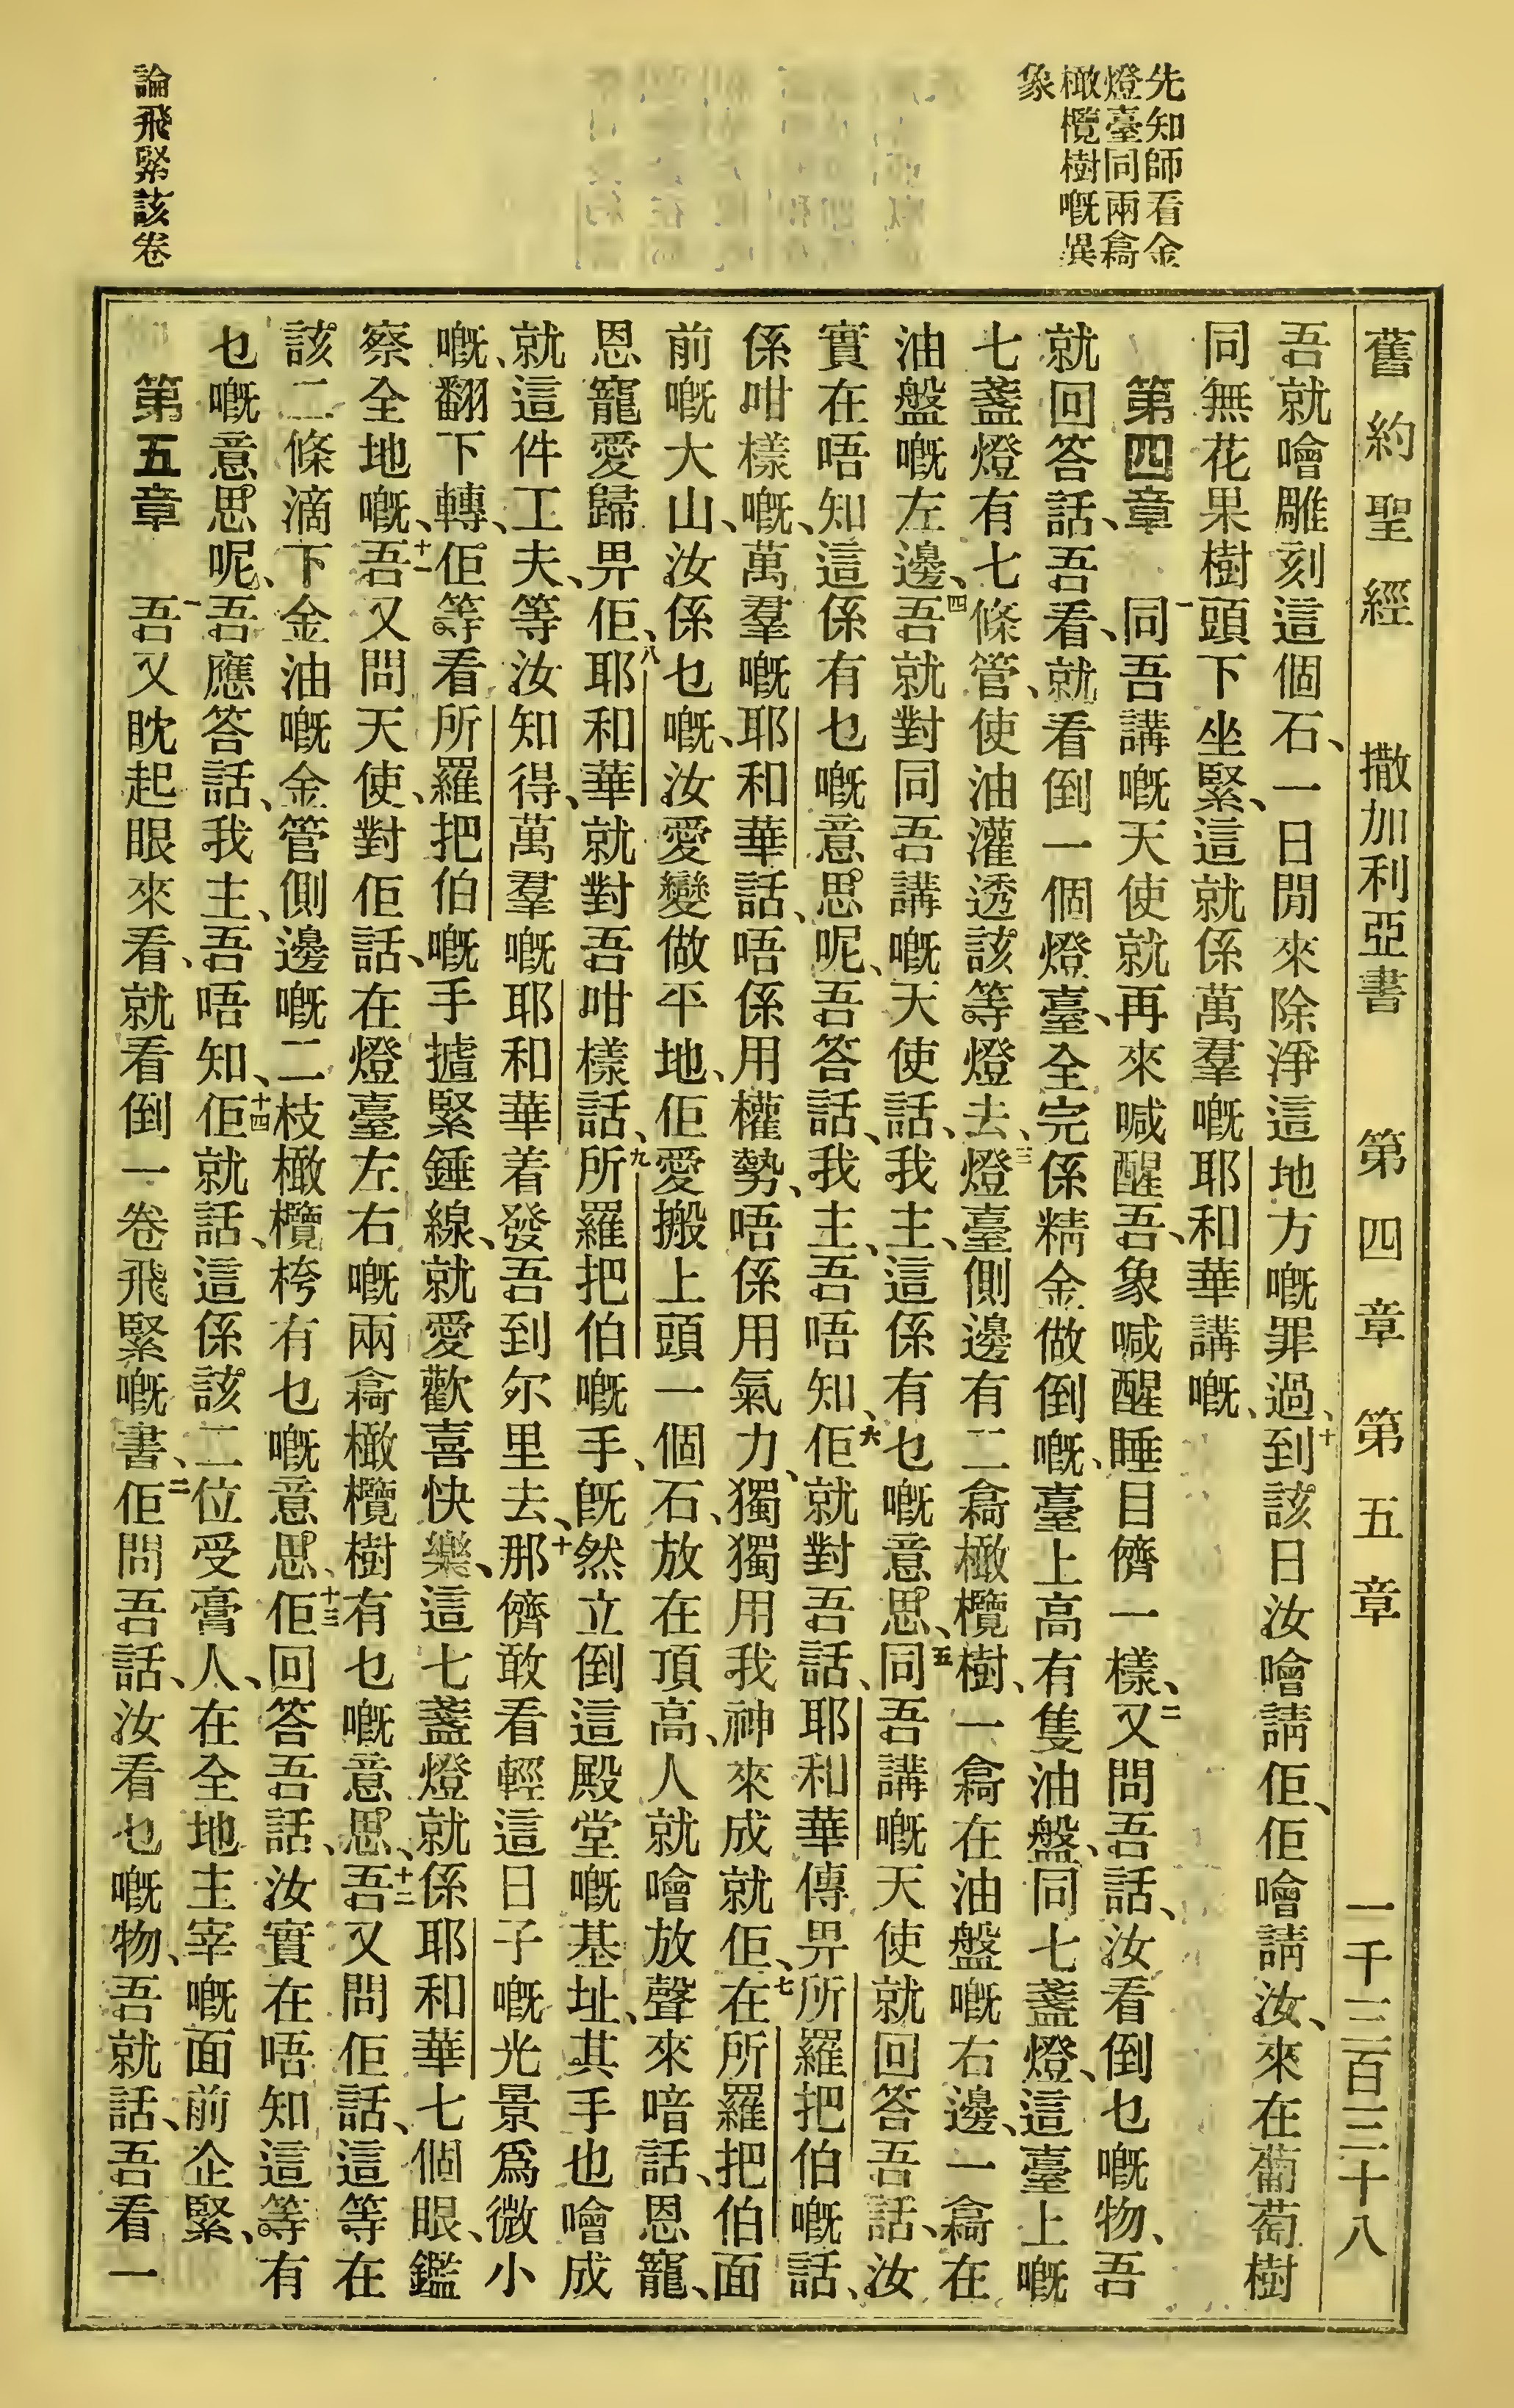 舊約聖經　撒加利亞書　第四章　第五章　一千三百三十八
先知師看金
燈臺同兩樖
橄欖樹嘅異
象
吾就噲雕刻這個石、一日閒來除淨這地方嘅罪過、十到該日汝噲請佢、佢噲請汝、來在葡萄樹
同無花果樹頭下坐緊、這就係萬羣嘅耶和華講嘅、
第四章　一同吾講嘅天使就再來喊醒吾、象喊醒睡目儕一樣、二又問吾話、汝看倒乜嘅物、吾
就回答話、吾看、就看倒一個燈臺、全完係精金做倒嘅、臺上高有隻油盤、同七盞燈、這臺上嘅
七盞燈有七條管、使油灌透該等燈去、三燈臺側邊有二樖橄欖樹、一樖在油盤嘅右邊、一樖在
油盤嘅左邊、四吾就對同吾講嘅天使話、我主、這係有乜嘅意思、五同吾講嘅天使就回答吾話、汝
實在唔知這係有乜嘅意思呢、吾答話、我主、吾唔知、六佢就對吾話、耶和華傳畀所羅把伯嘅話、
係咁樣嘅、萬羣嘅耶和華話、唔係用權勢、唔係用氣力、獨獨用我神來成就佢、七在所羅把伯面
前嘅大山、汝係乜嘅、汝愛變做平地、佢愛搬上頭一個石、放在頂高、人就噲放聲來喑話、恩寵、
恩寵愛歸畀佢、八耶和華就對吾咁樣話、九所羅把伯嘅手、旣然立倒這殿堂嘅基址、其手也噲成
就這件工夫、等汝知得、萬羣嘅耶和華着發吾到尔里去、十那儕敢看輕這日子嘅光景爲微小
嘅、翻下轉、佢等看所羅把伯嘅手摣緊錘線、就愛歡喜快樂、這七盞燈就係耶和華七個眼、鑑
察全地嘅、十一吾又問天使、對佢話、在燈臺左右嘅兩樖橄欖樹有乜嘅意思、十二吾又問佢話、這等在
該二條滴下金油嘅金管側邊嘅二枝橄欖桍有乜嘅意思、十三佢回答吾話、汝實在唔知這等有
乜嘅意思呢、吾應答話、我主、吾唔知、十四佢就話、這係該二位受膏人、在全地主宰嘅面前企緊、
第五章　一吾又眈起眼來看、就看倒一卷飛緊嘅書、二佢問吾話、汝看乜嘅物、吾就話、吾看一
論飛緊該卷